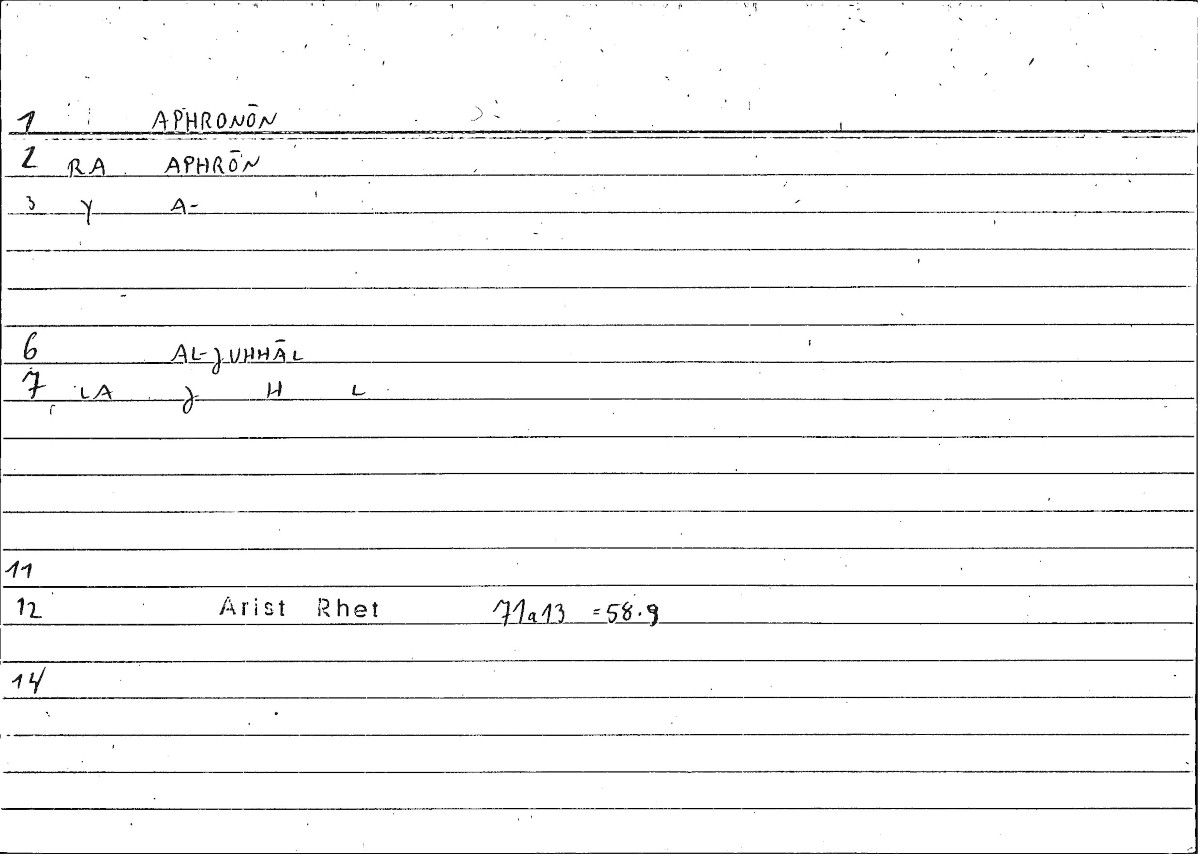 1 APHRONŌN
2 RA APHRŌN
3 Y A-
6 AL-JUHHĀL
7 LA J H L
11
12 Arist Rhet 71a13 =58.9
14